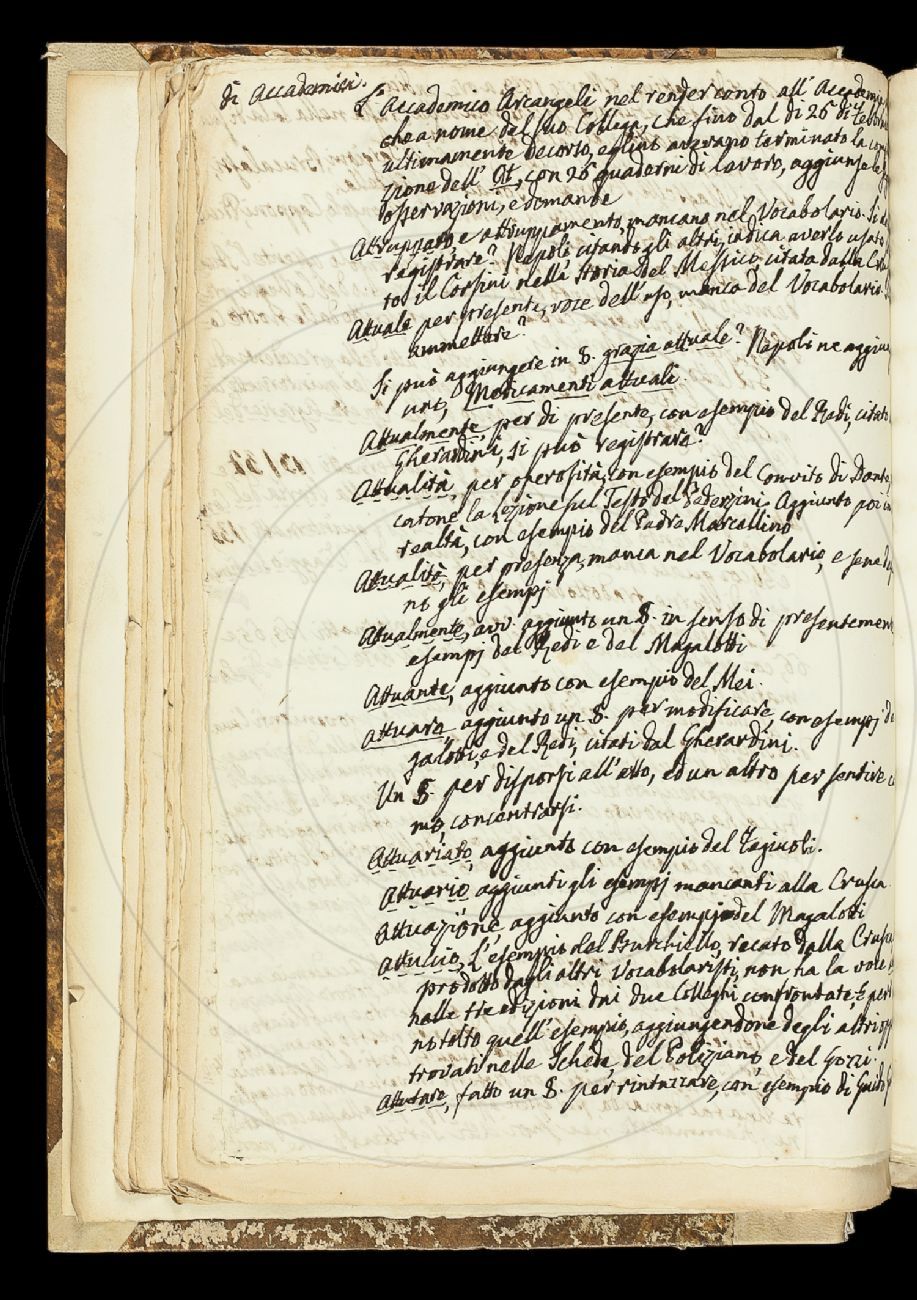 di Accademici.
L'Accademico Arcangeli nel render conto all'Accademia
che a nome del suo Collega, che fino dal dì 26 di Febbra
ultimamente decorso, eglino avevano terminato la com
zione dell' At, con 26 quaderni di lavoro, aggiunge le
osservazioni, e domande
Attruppato, e attruppamento, mancano nel Vocabolario. Si
registrare? Napoli, citando gli altri, indica averlo usato
to il Corsini nella Storia del Messico, citata dalla Cru
Attuale per presente, voce dell'uso, manca del Vocabolario.
ammettere?
Si può aggiungere in §. grazia attuale? Napoli ne aggiu
uno, Medicamenti attuali.
Attualmente per di presente, con esempio del Redi, citato
Gherardini, si può registrare?
Attualità, per operosità, con esempio del Convito di Dante
catone la Lezione sul Testo del Pederzini. Aggiunto poi in
realtà, con esempio del Padre Marcellino
Attualità, per presenza, manca nel Vocabolario, e se ne
no gli esempj
Attualmente, avv. aggiunto un §. in senso di presentemen
esempj del Redi e del Magalotti
Attuante, aggiunto con esempio del Mei.
Attuare, aggiunto un §. per modificare, con esempj
galotti e del Redi, citati dal Gherardini.
Un §. per disporsi all'atto, ed un altro per sentire
mo, concentrarsi.
Attuariato, aggiunto con esempio del Fagiuoli.
Attuario aggiunti gli esempj mancanti alla Crusca
Attuazione, aggiunto con esempio del Magalotti
Attuccio, L'esempio del Burchiello, recato dalla Crusca
prodotto dagli altri Vocabolaristi, non ha la voce
nelle tre edizioni dai due Colleghi confrontate, È per
no tolto quell'esempio, aggiungendone degli altri
trovati nelle Schede, del Poliziano, e del Gozzi.
Attutare, fatto un §. per rintuzzare, con esempio di Guido